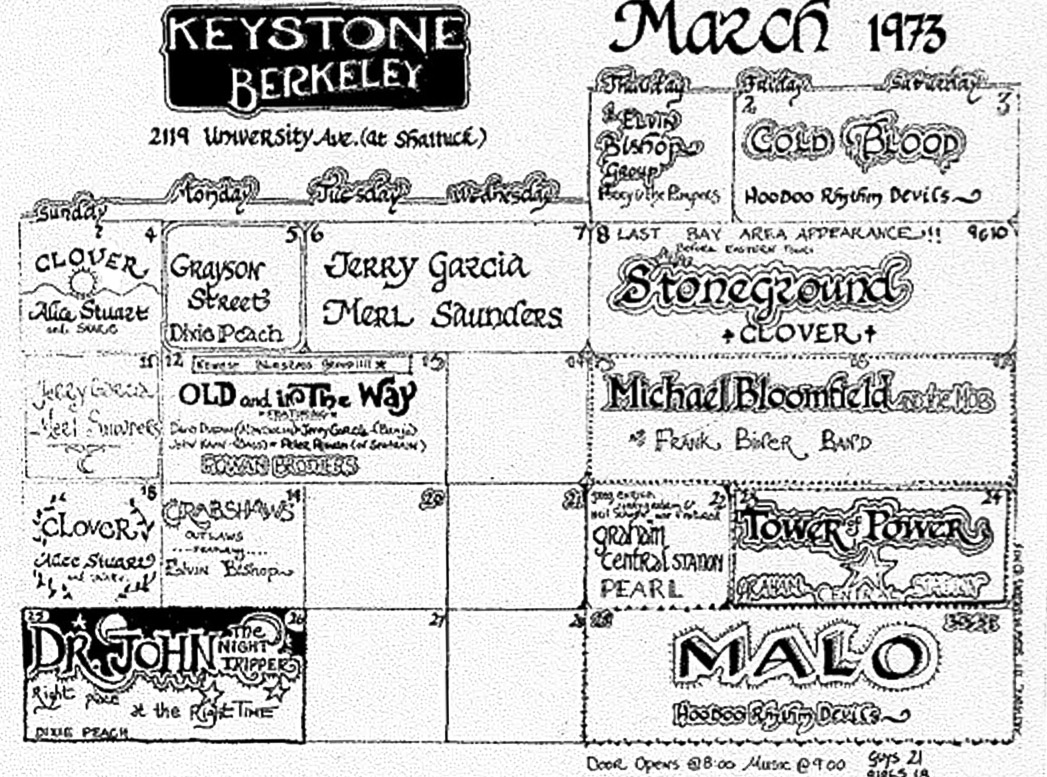 KEYSTONE
BERKELEY
2119 University Ave. (at Shattuck)
March 1973
Thursday Friday Saturday
Elvin
Bishop
Group
2 3
COLD BLOOD
HooDoo Rhythm Devils
Sunday Monday Tuesday Wednesday
4
CLOVER
Alice Stuart
and SNAKE
5
Grayson
Street
Dixie Peach
6 7
Jerry Garcia
Merl Saunders
8 LAST BAY AREA APPEARANCE!!! 9&10
Before EASTERN TOUR
Stoneground
CLOVER
11
Jerry Garcia
Merl Saunders
12 13
OLD and in The Way
FEATURING
Jerry Garcia (Banjo)
John Kahn (Bass) Peter Rowan
ROWAN BROTHERS
14
Michael Bloomfield and the
FRANK BINER BAND
18
CLOVER
Alice Stuart
and SNAKE
CRABSHAW'S
OUTLAWS
Elvin Bishop
20
21
22
graham
Central STATION
PEARL
23 24
Tower of Power
GRAHAM CENTRAL STATION
25 26
DR. JOHN The
NIGHT
TRIPPER
Right place
at the Right TIME
DIXIE PEACH
27
28
MALO
HooDoo Rhythm Devils
Door Opens @8:00 Music @9:00
Guys 21
GIRLS 18